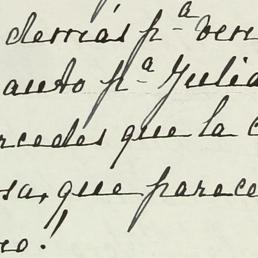 demás pª ven
auto pª Julia
rcedes que la c
sa, que parece
so!